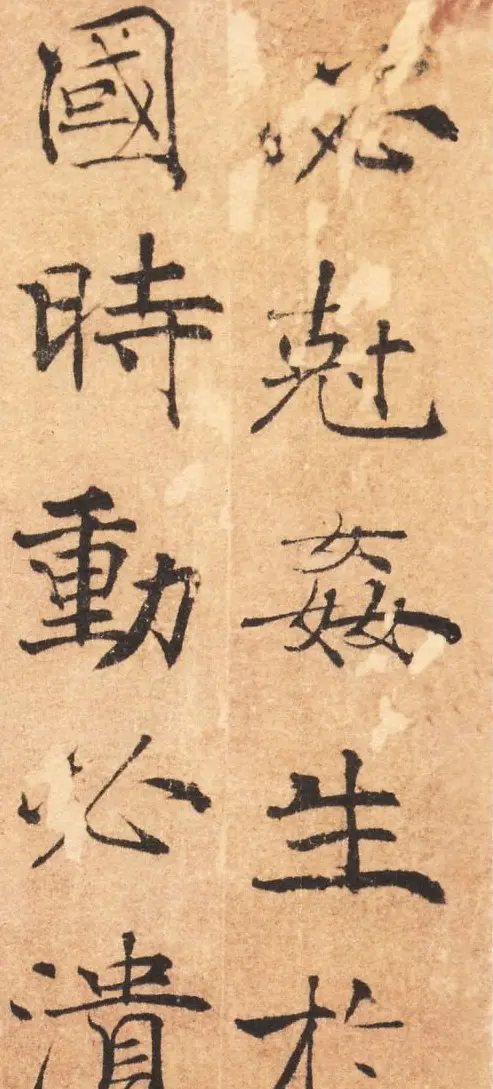 必尅姦生於
國時動必潰